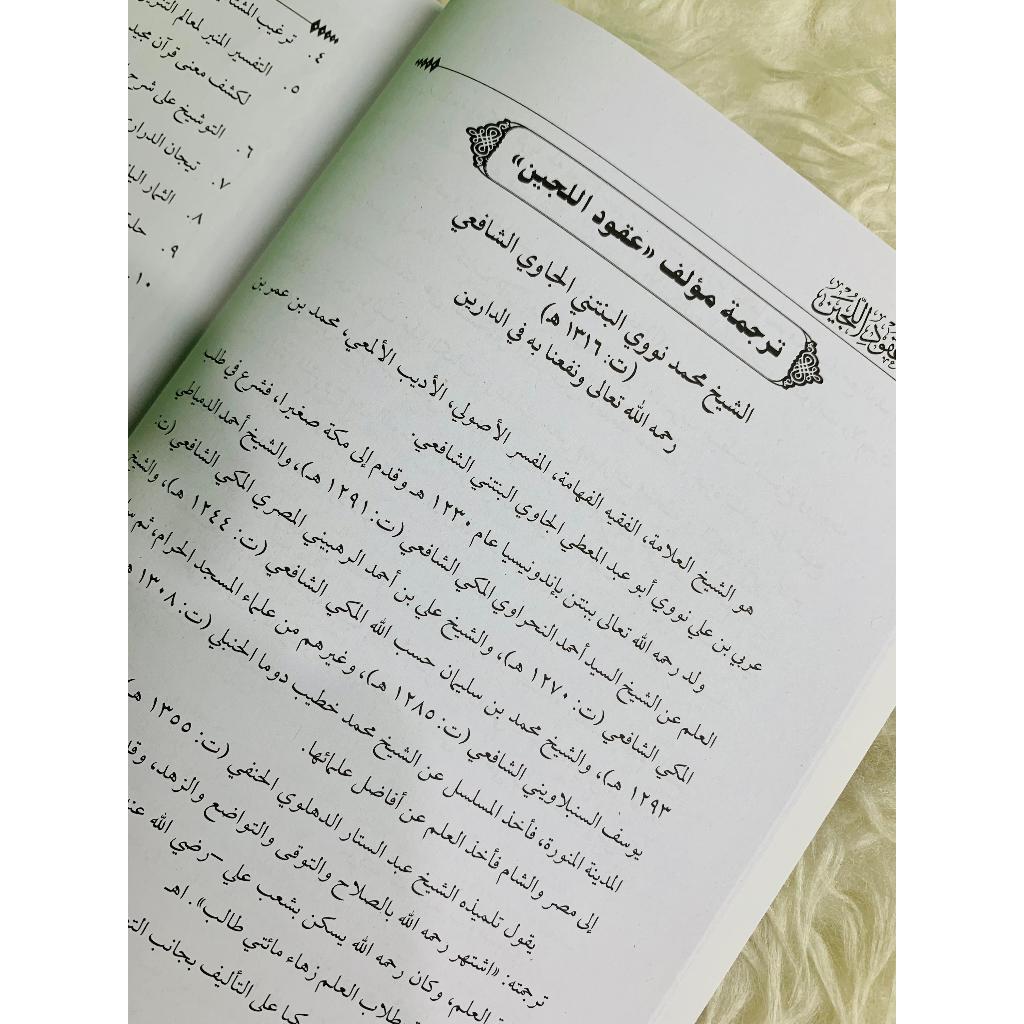 عقود اللجين
ترجمة مؤلف «عقود اللجين»
الشيخ محمد نووي البنتني الجاوي الشافعي
(ت: ١٣١٦ هـ)
رحمه الله تعالى ونفعنا به في الدارين
هو الشيخ العلامة، الفقيه الفهامة، المفسر الأصولي، الأديب الألمعي، محمد بن عمر بن
عربي بن علي نووي أبو عبد المعطي الجاوي البنتني الشافعي.
ولد رحمه الله تعالى ببنتن بإندونيسيا عام ١٢٣٠ هـ وقدم إلى مكة صغيرا، فشرع في طلب
العلم عن الشيخ السيد أحمد النحراوي المكي الشافعي (ت: ١٢٩١ هـ)، والشيخ أحمد الدمياطي
المكي الشافعي (ت: ١٢٧٠ هـ)، والشيخ علي بن أحمد الرهبيني المصري المكي الشافعي (ت:
١٢٩٣ هـ)، والشيخ محمد بن سليمان حسب الله المكي الشافعي (ت: ١٢٤٤ هـ)، والشيخ
يوسف السنبلاويني الشافعي (ت: ١٢٨٥ هـ)، وغيرهم من علماء المسجد الحرام، ثم
المدينة المنورة، فأخذ المسلسل عن الشيخ محمد خطيب دوما الحنبلي (ت: ١٣٠٨
إلى مصر والشام فأخذ العلم عن أفاضل علمائها.
يقول تلميذه الشيخ عبد الستار الدهلوي الحنفي (ت: ١٣٥٥ هـ)
ترجمته: «اشتهر رحمه الله بالصلاح والتوقى والتواضع والزهد،
العلم، وكان رحمه الله يسكن بشعب علي -رضي الله عنه
طلاب العلم زهاء مائتي طالب». اهـ
على التأليف بجانب
٤. ترغيب
٥. التفسير المنير لمعالم
لكشف معنى قرآن مجيد
٦. التوشيخ على شرح
٧. تيجان الدراري
٨. الثمار
٩.
١٠.